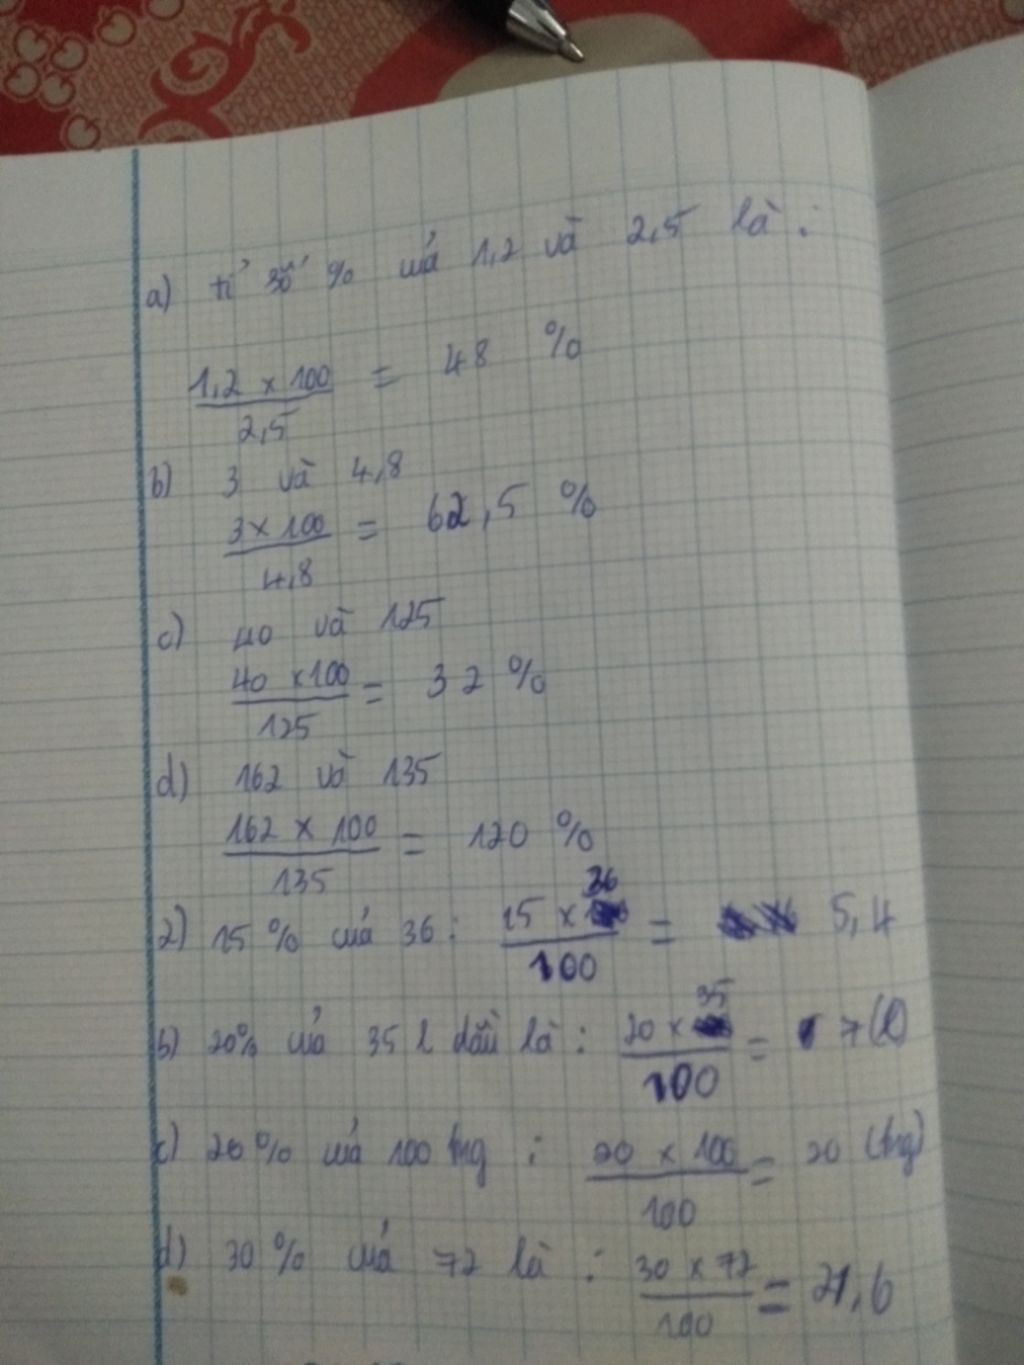 a) tỉ số % của 1,2 và 2,5 là :
1,2 x 100 / 2,5 = 48 %
b) 3 và 4,8
3 x 100 / 4,8 = 62,5 %
c) 40 và 125
40 x 100 / 125 = 32 %
d) 162 và 135
162 x 100 / 135 = 120 %
2) 15 % của 36 : 15 x 36 / 100 = 5,4
b) 20% của 35 l dầu là : 20 x 35 / 100 = 7 (l)
c) 20 % của 100 kg : 20 x 100 / 100 = 20 (kg)
d) 30 % của 72 là : 30 x 72 / 100 = 21,6